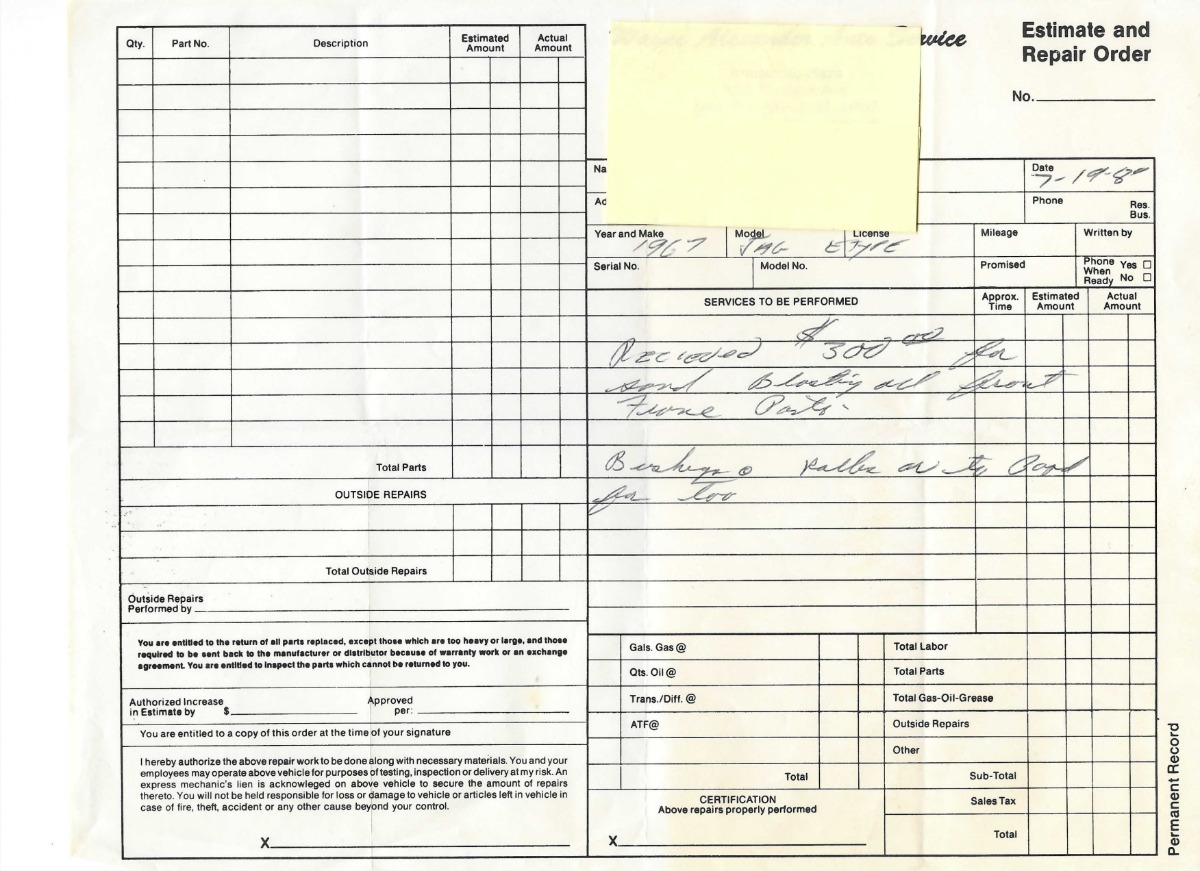 Estimate and
Repair Order
No.
Qty. Part No. Description Estimated Amount Actual Amount
Date 7-19-8
Phone Res.
Bus.
Year and Make 1967 Model JAG License ETYPE Mileage Written by
Serial No. Model No. Promised Phone When Ready Yes □ No □
SERVICES TO BE PERFORMED Approx. Time Estimated Amount Actual Amount
Recieved $300.00 for
sand Blasting all front
Frame Parts.
Total Parts
OUTSIDE REPAIRS
for too
Total Outside Repairs
Outside Repairs
Performed by
You are entitled to the return of all parts replaced, except those which are too heavy or large, and those
required to be sent back to the manufacturer or distributor because of warranty work or an exchange
agreement. You are entitled to inspect the parts which cannot be returned to you.
Authorized Increase
in Estimate by $
Approved
per:
You are entitled to a copy of this order at the time of your signature
I hereby authorize the above repair work to be done along with necessary materials. You and your
employees may operate above vehicle for purposes of testing, inspection or delivery at my risk. An
express mechanic's lien is acknowleged on above vehicle to secure the amount of repairs
thereto. You will not be held responsible for loss or damage to vehicle or articles left in vehicle in
case of fire, theft, accident or any other cause beyond your control.
X
Gals. Gas @ Total Labor
Qts. Oil @ Total Parts
Trans./Diff. @ Total Gas-Oil-Grease
ATF@ Outside Repairs
Other
Total Sub-Total
CERTIFICATION
Above repairs properly performed
Sales Tax
X
Total
Permanent Record